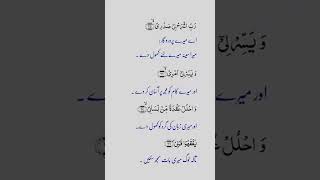 رَبِّ اشْرَحْ لِیْ صَدْرِیْ ۙ﴿۲۵﴾
اے میرے پروردگار!
میرا سینہ میرے لئے کھول دے ۔
وَ یَسِّرْ لِیْۤ اَمْرِیْ ﴿۲۶﴾
اور میرے کام کو مجھ پر آسان کر دے ۔
وَ احْلُلْ عُقْدَةً مِّنْ لِّسَانِیْ ﴿۲۷﴾
اور میری زبان کی گرہ کو کھول دے ۔
یَفْقَهُوْا قَوْلِیْ ﴿۲۸﴾
تاکہ لوگ میری بات سمجھ سکیں ۔